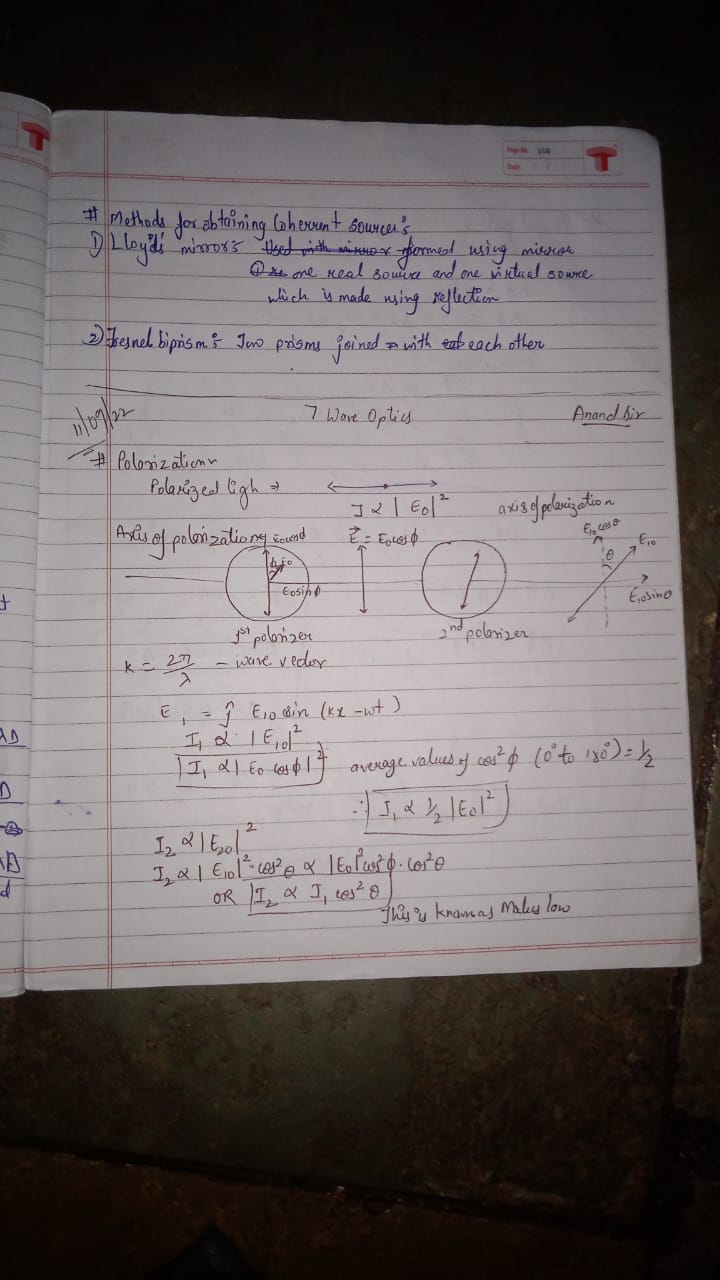 Page No. 158
Date: / /
T
# Methods for obtaining Coherent sources
1) Lloyd's mirror: Used with mirror formed using mirror
one real source and one virtual source
which is made using reflection
2) Fresnel biprism: Two prisms joined with each other
11/09/22
7 Wave Optics
Anand Sir
# Polarization
Polarized ligh ⇒
I ∝ |E₀|²
axis of polarization
Axis of polarization
E₀cosϕ
E⃗ = E₀cosϕ
E₁₀cosθ
E₁₀
θ
E₀
E₀sinϕ
E₁₀sinθ
1st polarizer
2nd polarizer
k = 2π/λ - wave vector
E₁ = ĵ E₁₀ sin (kx - wt)
I₁ ∝ |E₁₀|²
I₁ ∝ |E₀ cosϕ|²
average values of cos²ϕ (0° to 180°) = ½
∴ I₁ ∝ ½ |E₀|²
I₂ ∝ |E₂₀|²
I₂ ∝ |E₁₀|² · cos²θ ∝ |E₀|²cos²ϕ · cos²θ
OR I₂ ∝ I₁ cos²θ
This is known as Malus low